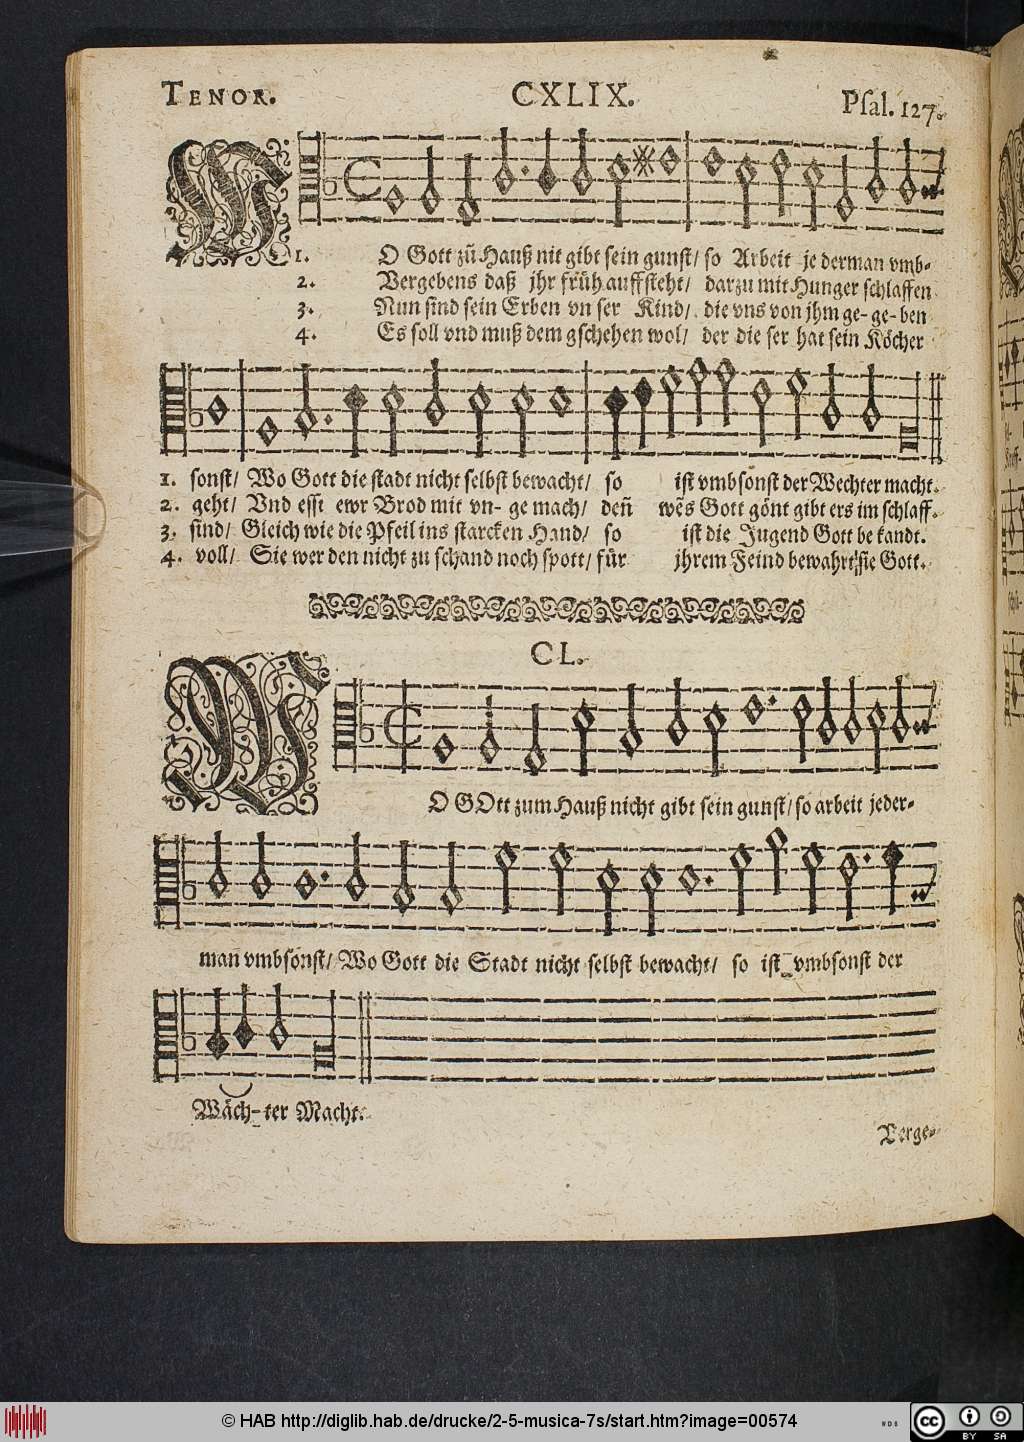 TENOR.
CXLIX.
Psal. 127.
W
1. O Gott zů Hauß nit gibt sein gunst/ so Arbeit je derman vmb-
2. Vergebens daß jhr früh auffsteht/ darzu mit Hunger schlaffen
3. Nun sind sein Erben vn ser Kind/ die vns von jhm ge- ge- ben
4. Es soll vnd muß dem gschehen wol/ der die ser hat sein Köcher
1. sonst/ Wo Gott die stadt nicht selbst bewacht/ so ist vmbsonst der Wechter macht.
2. geht/ Vnd esst ewr Brod mit vn- ge mach/ deñ wẽs Gott gönt gibt ers im schlaff.
3. sind/ Gleich wie die Pfeil ins starcken Hand/ so ist die Jugend Gott be kandt.
4. voll/ Sie wer den nicht zu schand noch spott/ für jhrem Feind bewahrt sie Gott.
CL.
W
O GOtt zum Hauß nicht gibt sein gunst/ so arbeit jeder-
man vmbsonst/ Wo Gott die Stadt nicht selbst bewacht/ so ist vmbsonst der
Wäch- ter Macht.
Verge-
© HAB http://diglib.hab.de/drucke/2-5-musica-7s/start.htm?image=00574
cc BY SA